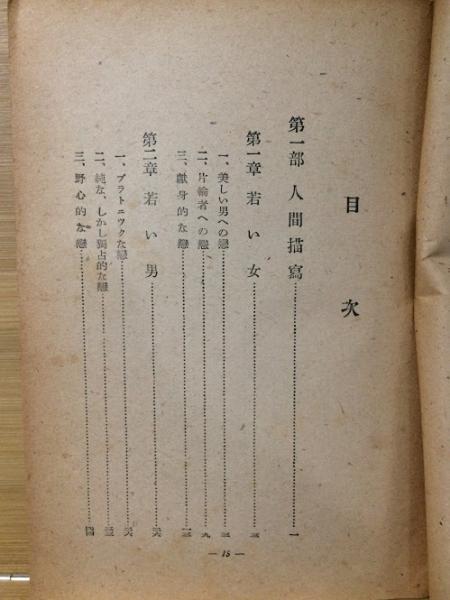 目次
第一部 人間描寫……一
第一章 若い女……三
一、美しい男への戀……三
二、片輪者への戀……九
三、獻身的な戀……
第二章 若い男……
一、プラトニツクな戀……
二、純な、しかし獨占的な戀……
三、野心的な戀……
— 15 —